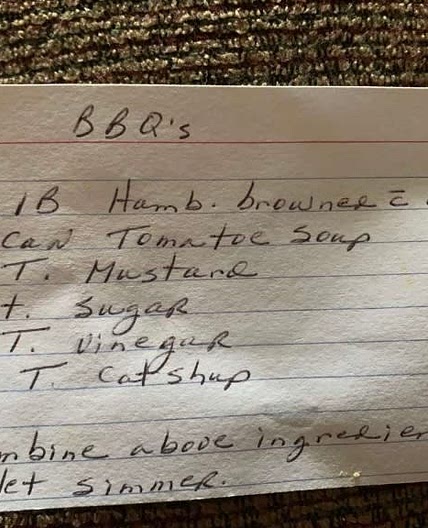 BBQ's
1B Hamb. browned c̄
Can Tomatoe Soup
T. Mustard
t. Sugar
T. Vinegar
T. Catshup
mbine above ingredien
let simmer.